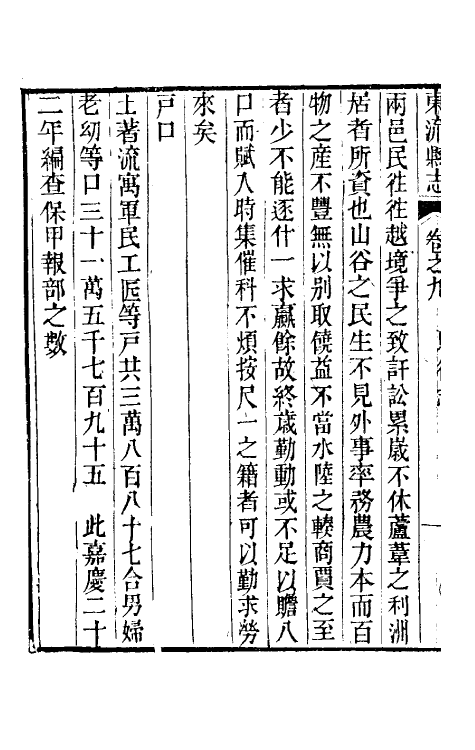 東流縣志 卷之九
兩邑民往往越境爭之致訐訟累歲不休蘆葦之利洲
居者所資也山谷之民生不見外事率務農力本而百
物之産不豐無以别取饒益不當水陸之輳商賈之至
者少不能逐什一求贏餘故終歲勤動或不足以贍八
口而賦入時集催科不煩按尺一之籍者可以勤求勞
來矣
戸口
土著流寓軍民工匠等戸共三萬八百八十七合男婦
老幼等口三十一萬五千七百九十五 此嘉慶二十
二年編查保甲報部之數